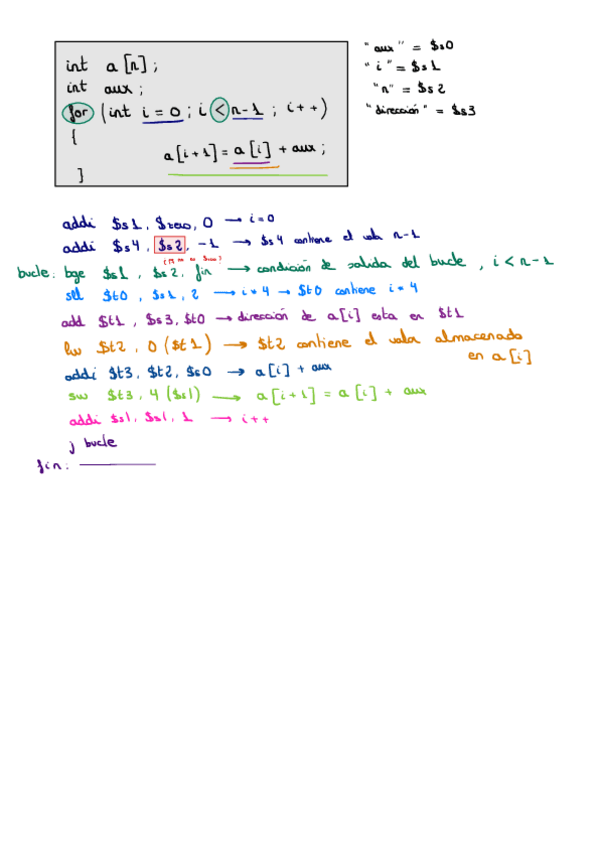 int a [n] ;
int aux ;
for (int i = 0 ; i < n-1 ; i++)
{
a[i+1] = a[i] + aux ;
}
"aux" = $s0
"i" = $s1
"n" = $s2
"dirección" = $s3
addi $s1, $zero, 0 → i=0
addi $s4, $s2, -1 → $s4 contiene el valor n-1
bucle: bge $s1, $s2, fin → condición de salida del bucle, i < n-1
sll $t0, $s1, 2 → i*4 → $t0 contiene i*4
add $t1, $s3, $t0 → dirección de a[i] esta en $t1
lw $t2, 0($t1) → $t2 contiene el valor almacenado
en a[i]
addi $t3, $t2, $s0 → a[i] + aux
sw $t3, 4($s1) → a[i+1] = a[i] + aux
addi $s1, $s1, 1 → i++
j bucle
fin: